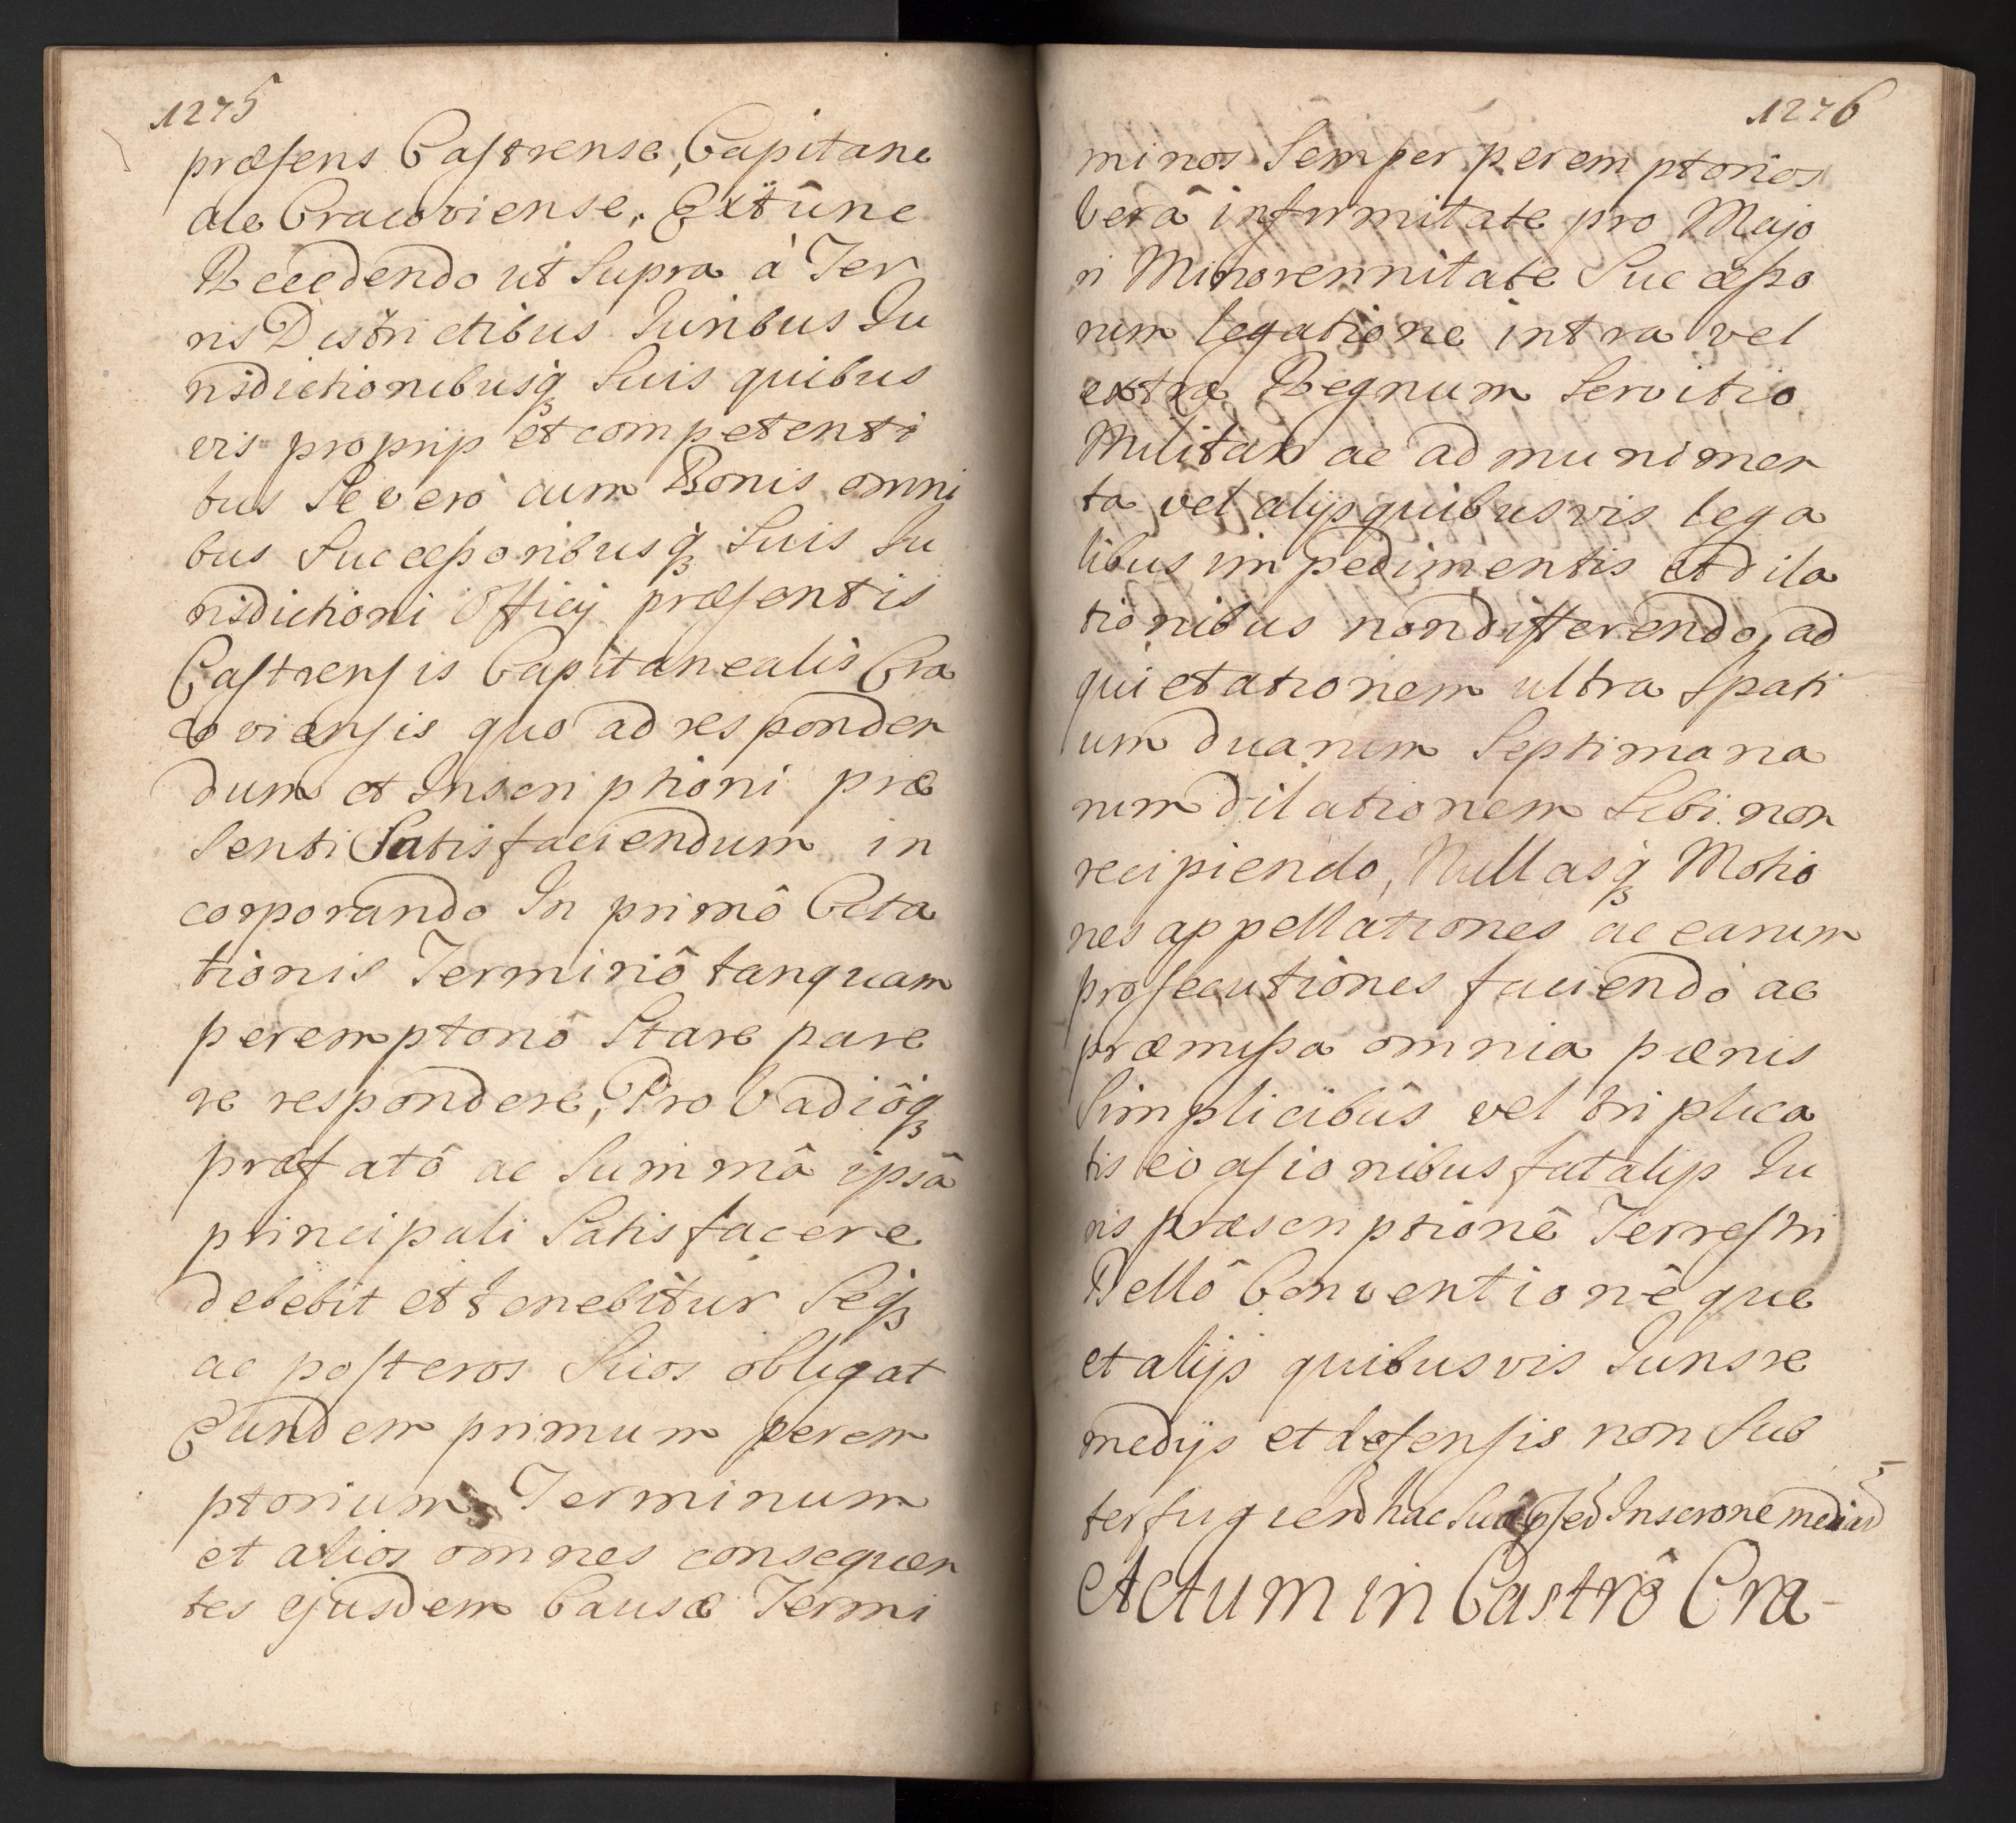 1275
præsens Castrense, Capitane
ale Cracoviense. Extûnc
Recedendo ut Supra à Ter
ris Districtibus Iuribus Iu
risdictionibusq́ʒ Suis quibus
vis proprijs et competenti
bus Se verò cum Bonis omni
bus Successoribusq́ʒ Suis Iu
risdictioni Officij præsentis
Castrensis Capitanealis Cra
coviensis quo ad responden
dum et Inscriptioni præ
senti Satisfaciendum in
corporando In primô Cita
tionis Terminô tanquam
peremptoriô Stare pare
re respondere, Pro Vadiôq́ʒ
præfatô ac Summâ ipsâ
principali Satisfacere
debebit et tenebitur Seq́ʒ
ac posteros Suos obligat
Eundem primum perem
ptorium Terminum
et alios omnes consequen
tes ejusdem Causæ Termi
1276
minos Semper peremptorios
verâ infirmitate pro Majo
ri Minorennitate Successo
rum legatione intra vel
extra Regnum Servitio
Militari ac ad munimen
ta vel alijs quibusvis lega
libus impedimentis et dila
tionibus non differendo, ad
quietationem ultra Spati
um duarum Septimana
rum dilationem Sibi non
recipiendo, Nullasq́ʒ Motio
nes appellationes ac earum
prosecutiones faciendo ac
præmissa omnia pœnis
Simplicibûs vel triplica
tis evasionibus fatalijs Iu
ris præscriptionê Terrestri
Bellô Conventionêque
et alijs quibusvis Iuris re
medijs et defensis non Sub
terfugiend hac Suâ Inscrone mediand
Actum in Castrô Cra-